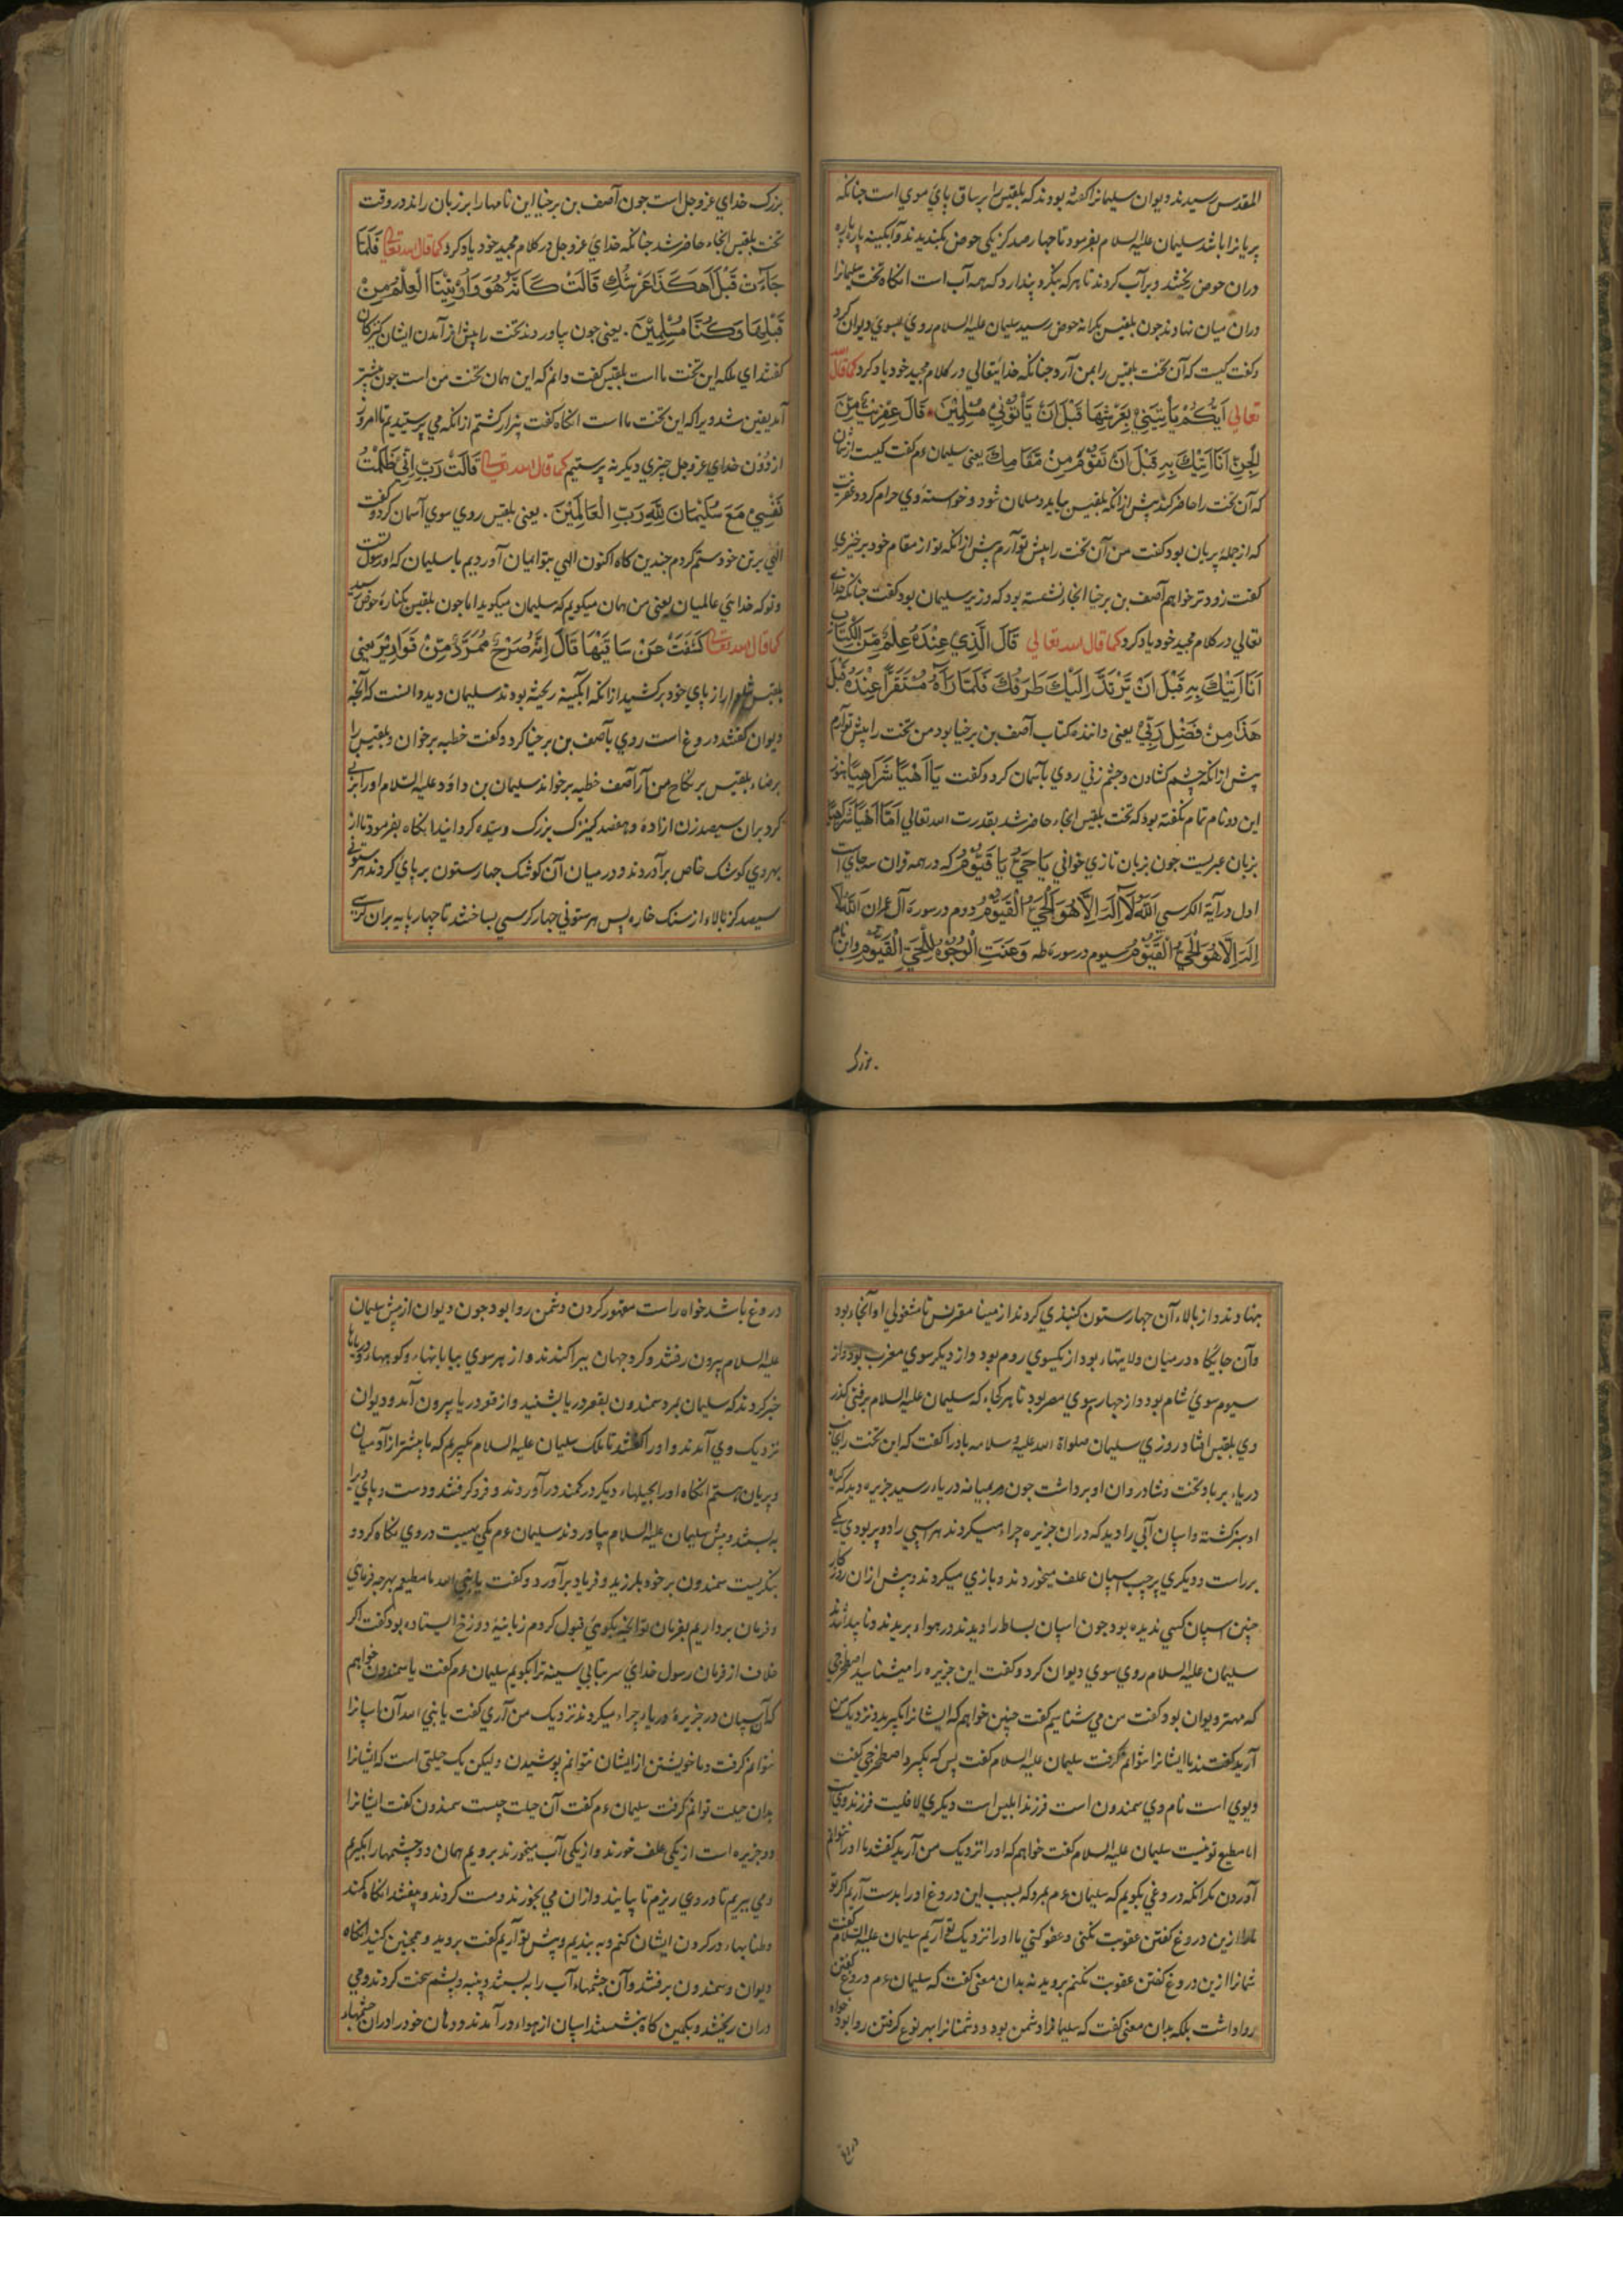 المقدس رسیدند و دیوان سلیمانرا کفته بودند که بلقیس را بر ساق پای موی است جنانکه
پریانرا باشد سلیمان علیه السلام بفرمود تا جهار صد کز یکی حوض بکندیدند و آبکینه پاره پاره
دران حوض ریختند و بر آب کردند تا هر که بنکرد پندارد که همه آب است انکاه تخت سلیمانرا
دران میان نهادند جون بلقیس بکرانه حوض رسید سلیمان علیه السلام روی بسوی دیوان کرد
و کفت کیست که آن تخت بلقیس را بمن آرد جنانکه خدایتعالی در کلام مجید خود یاد کرد کما قال الله
تعالی اَیُّکُمْ یَأْتِینِیْ بِعَرْشِهَا قَبْلَ اَنْ یَأْتُوْنِیْ مُسْلِمِیْنَ قَالَ عِفْرِیْتٌ مِّنَ
الْجِنِّ اَنَا اٰتِیْكَ بِهِ قَبْلَ اَنْ تَقُوْمَ مِنْ مَّقَامِكَ یعنی سلیمان ءم کفت کیست از شمایان
که آن تخت را حاضر کند پیش ازانکه بلقیس بیاید و مسلمان شود و خواسته وی حرام کردد عفریت
که از جمله پریان بود کفت من آن تخت را پیش تو آرم پیش ازانکه تو از مقام خود برخیزی
کفت زودتر خواهم آصف بن برخیا انجا نشسته بود که وزیر سلیمان بود کفت جنانکه خدای
تعالی در کلام مجید خود یاد کرد کما قال الله تعالی قَالَ الَّذِیْ عِنْدَهُ عِلْمٌ مِّنَ الْکِتَابِ
اَنَا اٰتِیْكَ بِهِ قَبْلَ اَنْ یَّرْتَدَّ اِلَیْكَ طَرْفُكَ فَلَمَّا رَاٰهُ مُسْتَقَرًّا عِنْدَهُ قَبْلَ
هٰذَا مِنْ فَضْلِ رَبِّیْ یعنی دانندهٔ کتاب آصف بن برخیا بود من تخت را پیش تو آرم
پیش ازانکه چشم کشادن و چشم زنی روی بآسمان کرد و کفت یَا اَهْیًا شَرَاهِیًا هنوز
این دو نام تمام نکفته بود که تخت بلقیس انجا حاضر شد بقدرت الله تعالی اَمَّا اَهْیًا شَرَاهِیًا
بزبان عبریست جون بزبان تازی خوانی یَا حَیُّ یَا قَیُّوْمُ که در همه قران سه جای است
اول در آیة الکرسی اَللهُ لَا اِلٰهَ اِلَّا هُوَ الْحَیُّ الْقَیُّوْمُ دوم در سورة آل عمران اَللهُ لَا
اِلٰهَ اِلَّا هُوَ الْحَیُّ الْقَیُّوْمُ سیوم در سورة طه وَعَنَتِ الْوُجُوْهُ لِلْحَیِّ الْقَیُّوْمِ و این نام
بزرک
بزرک خدای عز و جل است جون آصف بن برخیا این نامها را بر زبان راند در وقت
تخت بلقیس انجاء حاضر شد جنانکه خدای عز و جل در کلام مجید خود یاد کرد کما قال الله تعالی فَلَمَّا
جَاۤءَتْ قِیْلَ اَهٰکَذَا عَرْشُكِ قَالَتْ کَاَنَّهُ هُوَ وَاُوْتِیْنَا الْعِلْمَ مِنْ
قَبْلِهَا وَکُنَّا مُسْلِمِیْنَ . یعنی جون بیاوردند تخت را پیش از آمدن ایشان کنیزکان
کفتند ای ملکه این تخت ما است بلقیس کفت دانم که این همان تخت من است جون پیشتر
آمد یقین شد ویرا که این تخت ما است انکاه کفت بیزار کشتم از انکه می پرستیدیم تا امروز
از دون خدای عز و جل چیزی دیکر نه پرستیم کما قال الله تعالی قَالَتْ رَبِّ اِنِّیْ ظَلَمْتُ
نَفْسِیْ مَعَ سُلَیْمَانَ لِلّٰهِ رَبِّ الْعَالَمِیْنَ . یعنی بلقیس روی سوی آسمان کرد و کفت
الهی بر تن خود ستم کردم جندین کاه اکنون الهی بتو ایمان آوردیم با سلیمان که او رسول تست
و تو که خدای عالمیان یعنی من همان میکویم که سلیمان میکوید اما جون بلقیس بکناره حوض رسید
کما قال الله تعالی کَشَفَتْ عَنْ سَاقَیْهَا قَالَ اِنَّهُ صَرْحٌ مُّمَرَّدٌ مِّنْ قَوَارِیْرَ یعنی
بلقیس شلوار از پای خود برکشید از انکه ابکینه ریخته بودند سلیمان دید دانست که آنچه
دیوان کفتند دروغ است روی بآصف بن برخیا کرد و کفت خطبه برخوان و بلقیس را
برضاء بلقیس بر نکاح من آر آصف خطبه برخواند سلیمان بن داود علیه السلام او را بزنی
کرد بران سیصد زن ازاده و هفصد کنیزک بزرک و سیده کردانید انکاه بفرمود تا از
بهر وی کوشک خاص برآوردند و در میان آن کوشک جهار ستون بر پای کردند هر ستونی
سیصد کز بالاء از سنک خاره پس هر ستونی جهار کرسی بساختند تا چهار پایه بران کرسی
بنهادند و از بالاء آن جهار ستون کنبذی کردند از مینا مقرنس تا مشغولی او آنجاء بود
و آن جایکاه در میان ولایتهاء بود از یکسوی روم بود و از دیکر سوی مغرب بود و از
سیوم سوی شام بود و از چهارم سوی مصر بود تا هر کجاء که سلیمان علیه السلام برفتی کذر
وی بلقیس افتاد روزی سلیمان صلواة الله علیه و سلامه باد را کفت که این تخت را بجانب
دریاء بر باد تخت و شادروان او برداشت جون بر میانه دریاء رسید جزیره دید که کیاه
او سبز کشته و اسپان آبی را دید که دران جزیره چراء میکردند هر اسپی را دو پر بودی یکی
بر راست و دیکری بر چپ اسپان علف میخوردند و بازی میکردند و پیش ازان روزکار
چنین اسپان کسی ندیده بود جون اسپان بساط را دیدند در هواء بریدند و ناپیدا شدند
سلیمان علیه السلام روی سوی دیوان کرد و کفت این جزیره را میشناسید اصطخرجی
که مهتر دیوان بود کفت من می شناسیم کفت چنین خواهم که ایشانرا بکیرید و نزدیک من
آرید کفتند ما ایشانرا نتوانم کرفت سلیمان علیه السلام کفت پس که بکیرد اصطخرجی کفت
دیوی است نام وی سمندون است فرزند ابلیس است دیکری لاقیست فرزند وی است
اما مطیع تو نیست سلیمان علیه السلام کفت خواهم که او را نزدیک من آرید کفتند ما او را نتوانم
آوردن مکر انکه دروغی بکویم که سلیمان ءم بمرد که بسبب این دروغ او را بدست آریم اکر تو
مارا ازین دروغ کفتن عقوبت نکنی و عفو کنی ما او را نزدیک تو آریم سلیمان علیه السلام کفت
شمانرا ازین دروغ کفتن عقوبت نکنم بروید نه بدان معنی کفت که سلیمان ءم دروغ کفتن
روا داشت بلکه بدان معنی کفت که سلیمانرا دشمن بود و دشمنانرا بهر نوع کرفتن روا بود خواه
دروغ
دروغ باشد خواه راست مقهور کردن دشمن روا بود جون دیوان از پیش سلیمان
علیه السلام بیرون رفتند و کرد جهان بپراکندند و از هر سوی بیابانهاء و کوههاء و دریاها
خبر کردند که سلیمان بمرد سمندون بقعر دریا بشنید و از قعر دریا بیرون آمد و دیوان
نزدیک وی آمدند و او را کفتند تا ملک سلیمان علیه السلام بکیرم که ما بیشتر از آدمیان
و پریان هستم انکاه او را بحیلهاء دیکر در کمند درآوردند و فرو کرفتند و دست و پای ویرا
به بستند و پیش سلیمان علیه السلام بیاوردند سلیمان ءم یکی بهیبت در وی نکاه کرد و
بنکریست سمندون بر خود بلرزید و فریاد برآورد و کفت یا نبی الله ما مطیعم بهر چه فرمای
و فرمان برداریم بفرمان تو انچه بکوهی قبول کردم زبانیهٔ دوزخ ایستاده بود کفت اکر
خلاف از فرمان رسول خدای سر بتابی سینه ترا بکویم سلیمان ءم کفت یا سمندون خواهم
که آن اسپان در جزیرهٔ دریاء چراء میکردند نزدیک من آری کفت یا نبی الله آن اسپانرا
نتوانم کرفت و ما خویشتن از ایشان نتوانم پوشیدن ولیکن یک حیلتی است که ایشانرا
بدان حیلت توانم کرفت سلیمان ءم کفت آن حیلت چیست سمندون کفت ایشانرا
دو جزیره است از یکی علف خورند و از یکی آب میخورند برویم همان دو چشمها را بکیرم
و می ببریم تا در وی ریزم تا بیایند و ازان می بخورند و مست کردند و بیفتند انکاه کمند
و طنابهاء در کردن ایشان کنم و به بندیم و پیش تو آریم کفت بروید و همچنین کنید انکاه
دیوان و سمندون برفتند و آن چشمهاء آب را به بستند و پنبه و پشم سخت کردند و می
دران ریختند و بکمین کاه بنشستند اسپان از هواء درآمدند و دهان خود را دران چشمهاء